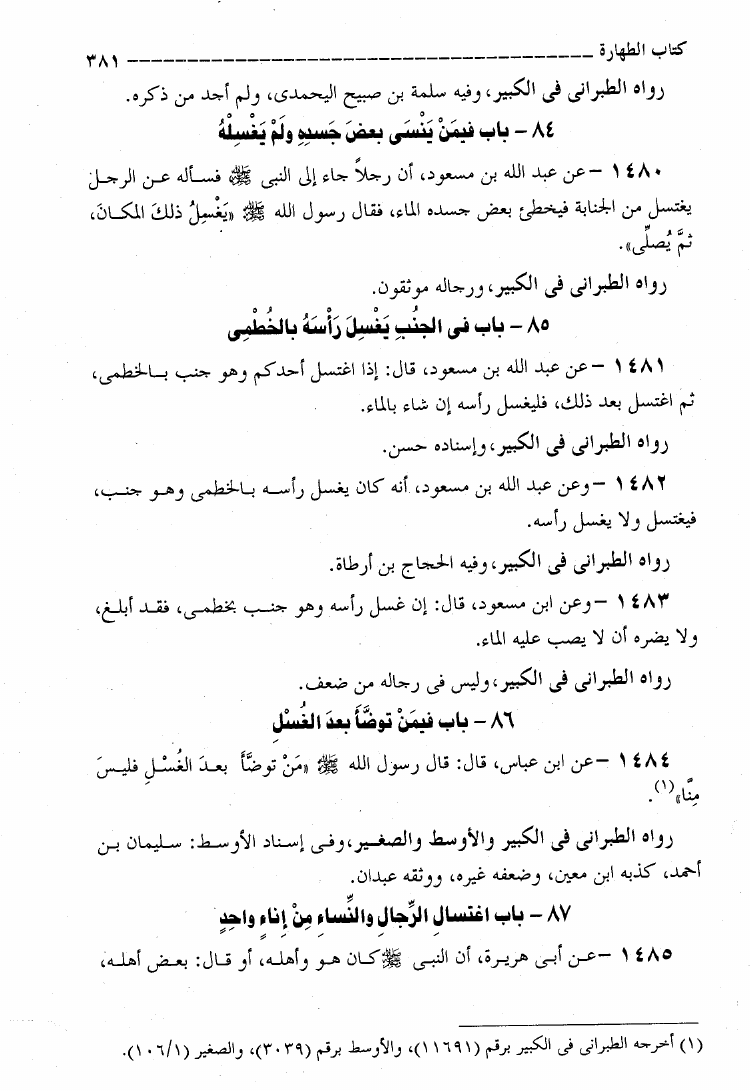 كتاب الطهارة ــــــــــــــــــــــــــــــــــــــــــــــــــــــ ٣٨١
رواه الطبرانى فى الكبير، وفيه سلمة بن صبيح اليحمدى، ولم أجد من ذكره.
٨٤ - باب فيمَنْ يَنْسَى بعضَ جَسدِهِ ولَمْ يَغْسِلْهُ
١٤٨٠ - عن عبد الله بن مسعود، أن رجلاً جاء إلى النبى ﷺ فسأله عن الرجل
يغتسل من الجنابة فيخطئ بعض جسده الماء، فقال رسول الله ﷺ «يَغْسِلُ ذلكَ المكانَ،
ثمَّ يُصلِّى».
رواه الطبرانى فى الكبير، ورجاله موثقون.
٨٥ - باب فى الجنُبِ يَغْسِلَ رَأْسَهُ بالخُطْمِى
١٤٨١ - عن عبد الله بن مسعود، قال: إذا اغتسل أحدكم وهو جنب بالخطمى،
ثم اغتسل بعد ذلك، فليغسل رأسه إن شاء بالماء.
رواه الطبرانى فى الكبير، وإسناده حسن.
١٤٨٢ - وعن عبد الله بن مسعود، أنه كان يغسل رأسه بالخطمى وهو جنب،
فيغتسل ولا يغسل رأسه.
رواه الطبرانى فى الكبير، وفيه الحجاج بن أرطاة.
١٤٨٣ - وعن ابن مسعود، قال: إن غسل رأسه وهو جنب بخطمى، فقد أبلغ،
ولا يضره أن لا يصب عليه الماء.
رواه الطبرانى فى الكبير، وليس فى رجاله من ضعف.
٨٦ - باب فيمَنْ توضَّأَ بعدَ الغُسْلِ
١٤٨٤ - عن ابن عباس، قال: قال رسول الله ﷺ «مَنْ توضَّأَ بعدَ الغُسْلِ فليسَ
مِنَّا»(١).
رواه الطبرانى فى الكبير والأوسط والصغير، وفى إسناد الأوسط: سليمان بن
أحمد، كذبه ابن معين، وضعفه غيره، ووثقه عبدان.
٨٧ - باب اغتسالِ الرِّجالِ والنِّساءِ مِنْ إناءٍ واحِدٍ
١٤٨٥ - عن أبى هريرة، أن النبى ﷺ كان هو وأهله، أو قال: بعض أهله،
(١) أخرجه الطبرانى فى الكبير برقم (١١٦٩١)، والأوسط برقم (٣٠٣٩)، والصغير (١٠٦/١).